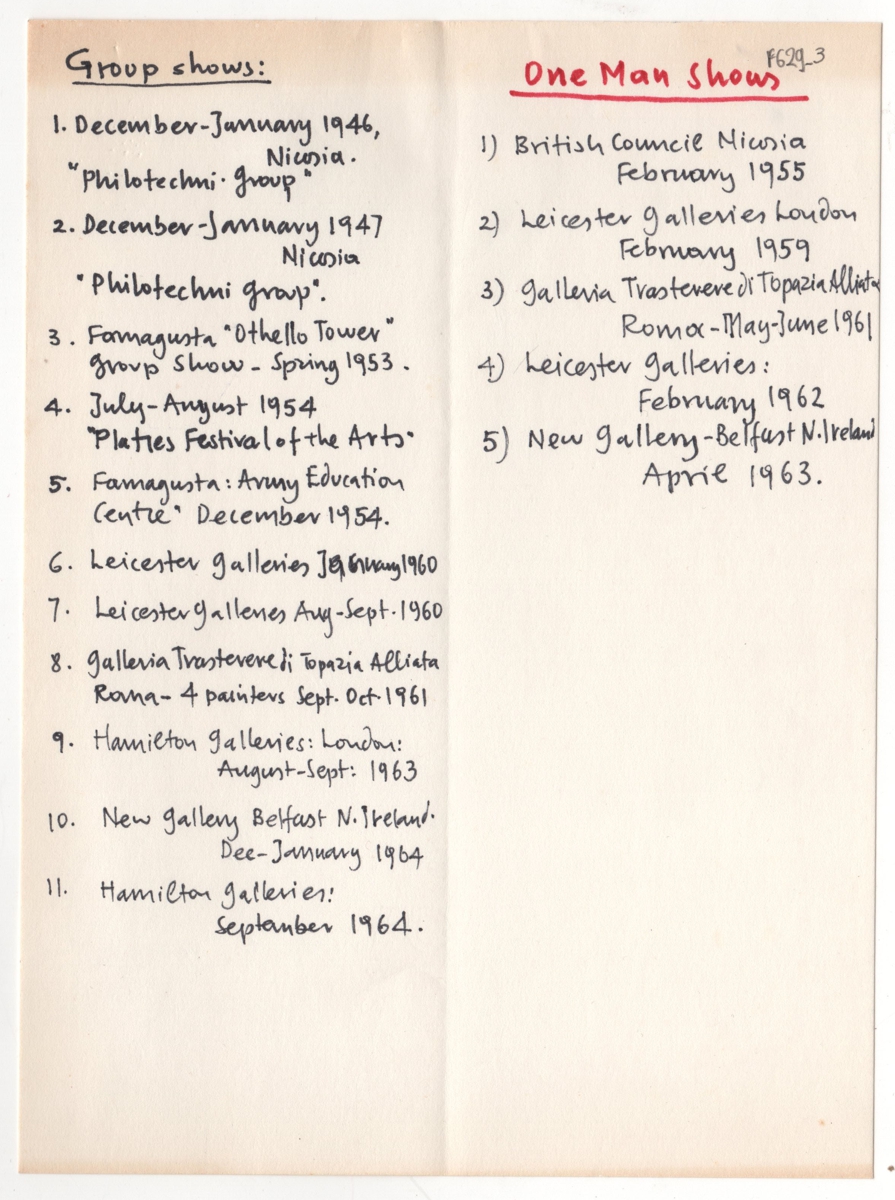 Group shows:
1. December-January 1946,
Nicosia.
"Philotechni. group"
2. December-January 1947
Nicosia
"Philotechni group".
3. Famagusta "Othello Tower"
group show - Spring 1953.
4. July-August 1954
"Platres Festival of the Arts"
5. Famagusta: Army Education
Centre" December 1954.
6. Leicester galleries 1960
7. Leicester galleries Aug-Sept. 1960
8. galleria Trastevere di Topazia Alliata
Roma- 4 painters Sept. Oct. 1961
9. Hamilton galleries: London:
August-Sept: 1963
10. New gallery Belfast N. Ireland.
Dec-January 1964
11. Hamilton galleries:
September 1964.
F629_3
One Man Shows
1) British Council Nicosia
February 1955
2) Leicester galleries London
February 1959
3) galleria Trastevere di Topazia Alliata
Roma-May-June 1961
4) Leicester galleries:
February 1962
5) New gallery-Belfast N. Ireland
April 1963.